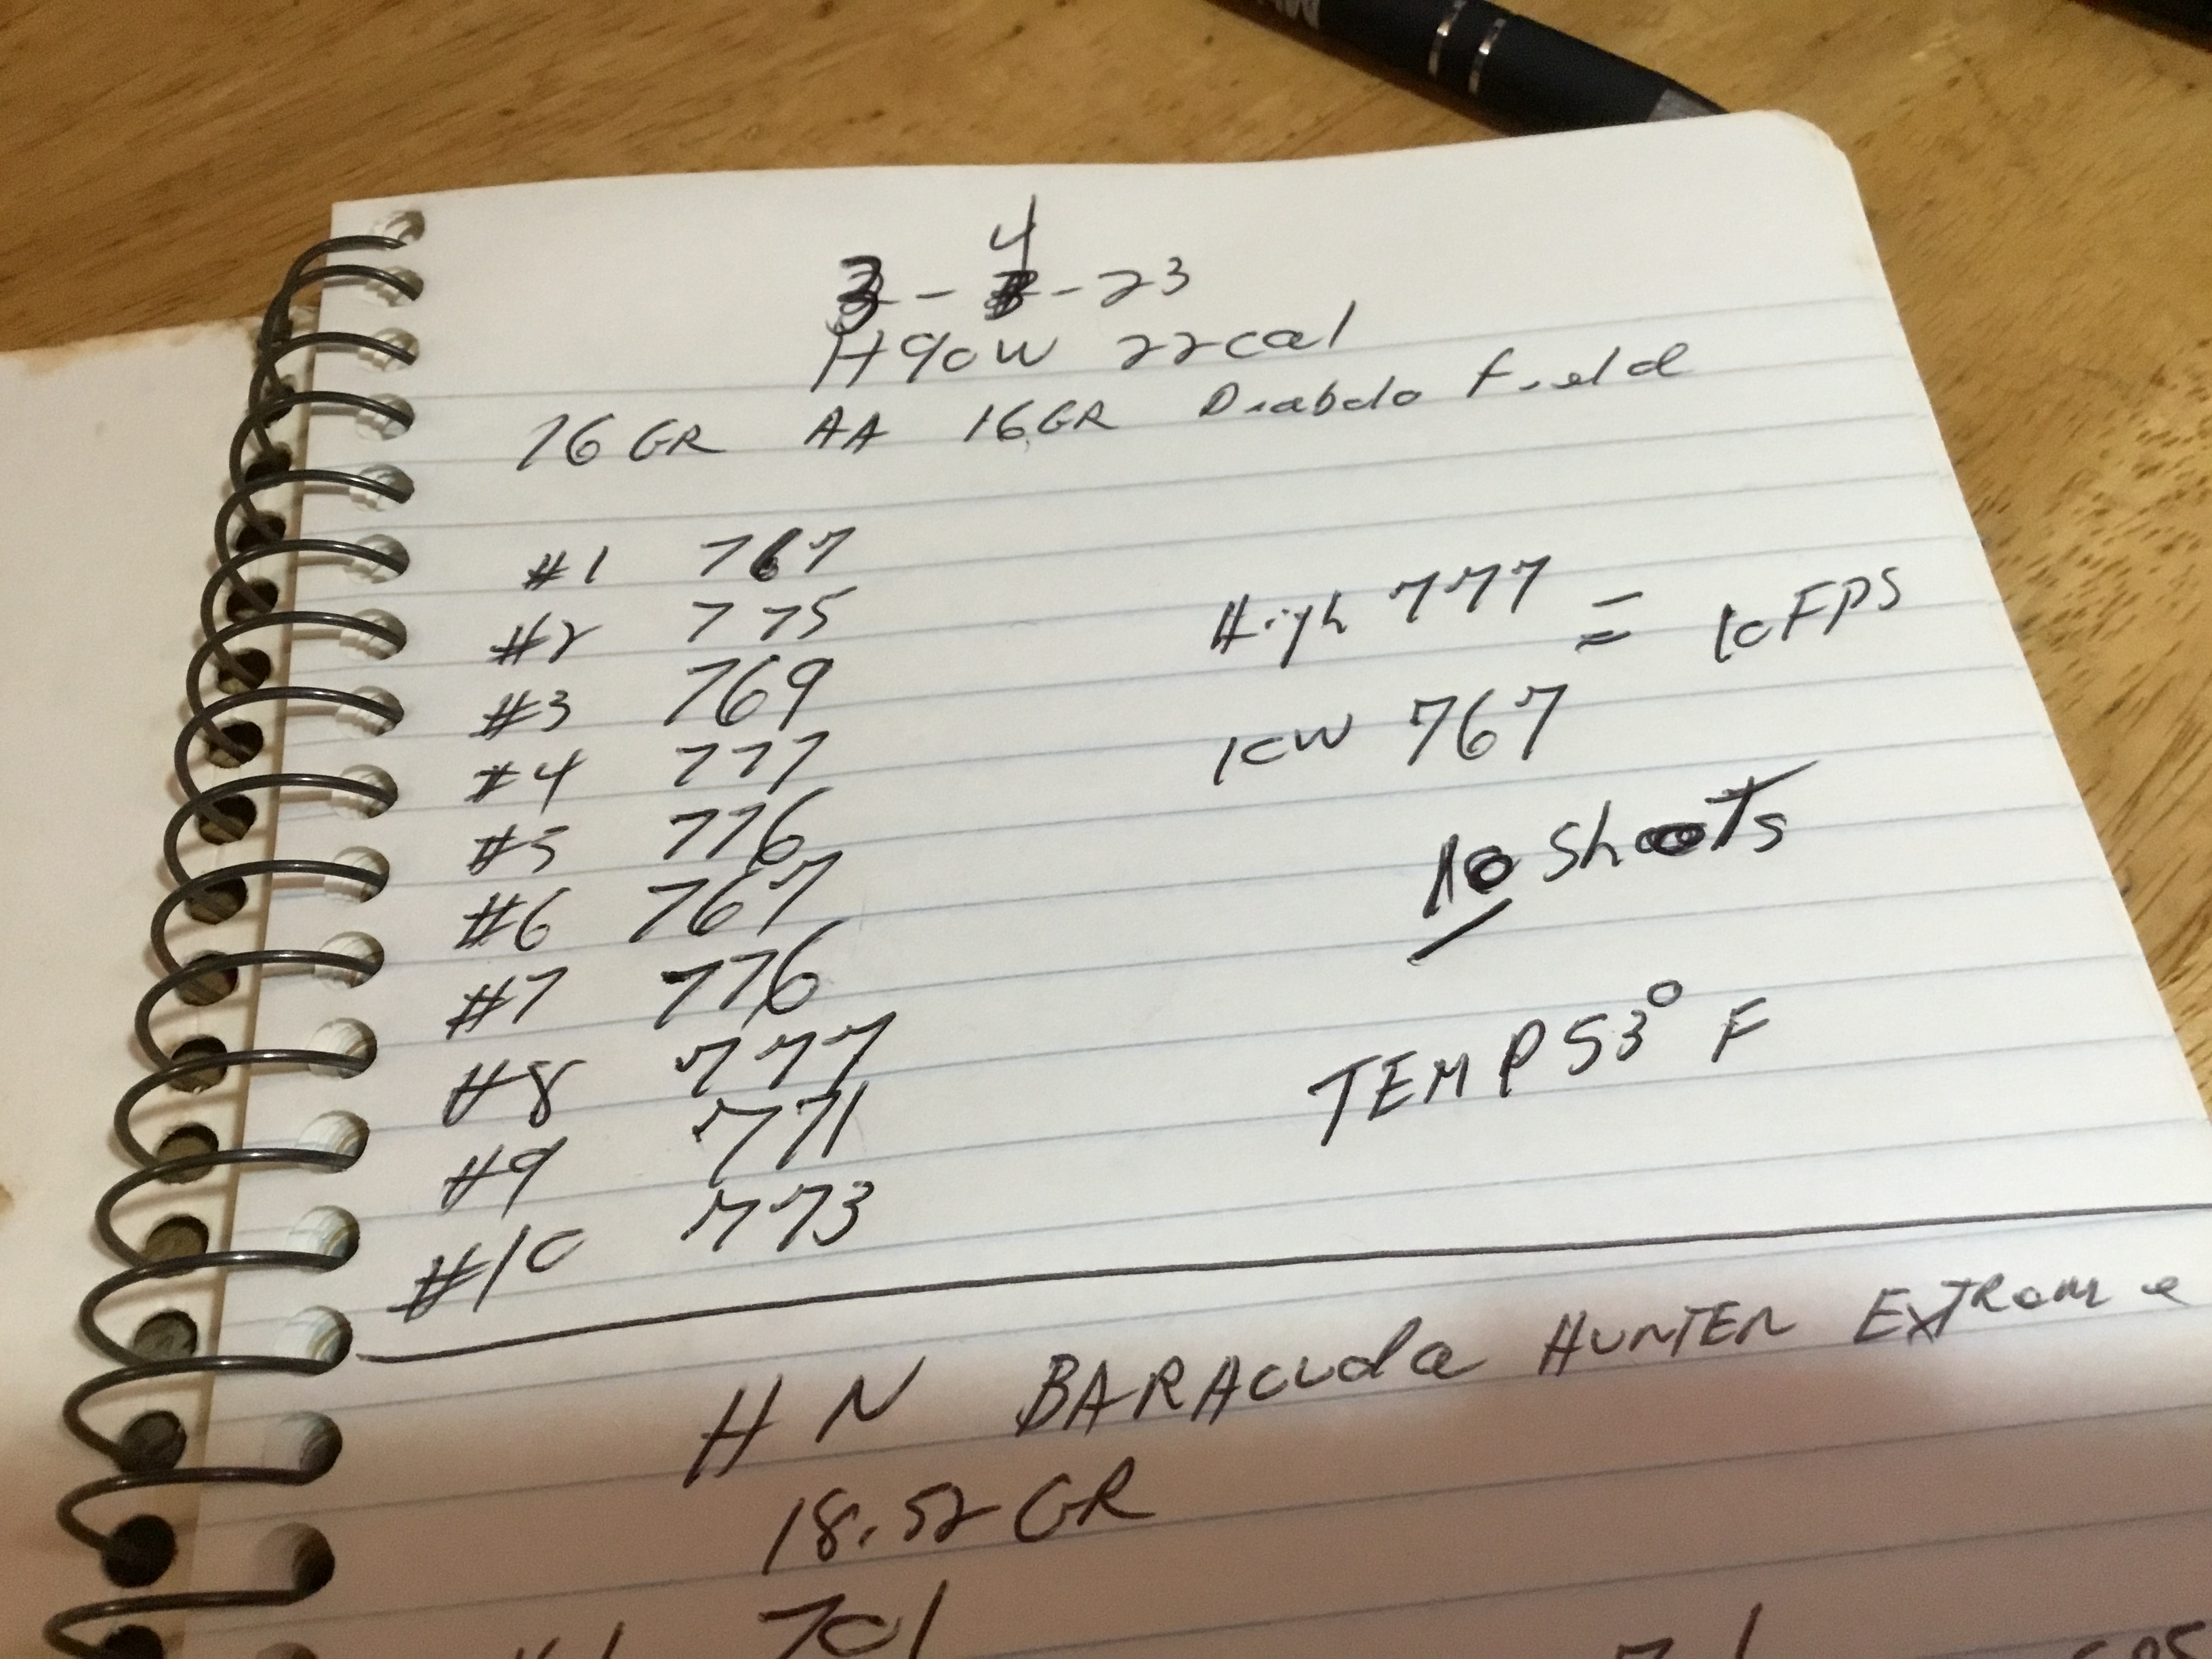 4
3 - - 23
H90W 22cal
16 GR AA 16GR Diabolo Field
#1 767
#2 775
#3 769
#4 777
#5 776
#6 767
#7 776
#8 777
#9 771
#10 773
High 777 = 10 FPS
low 767
10 Shoots
TEMP 53° F
H N BARACuda HUNTER EXTReme
18.52 GR
701